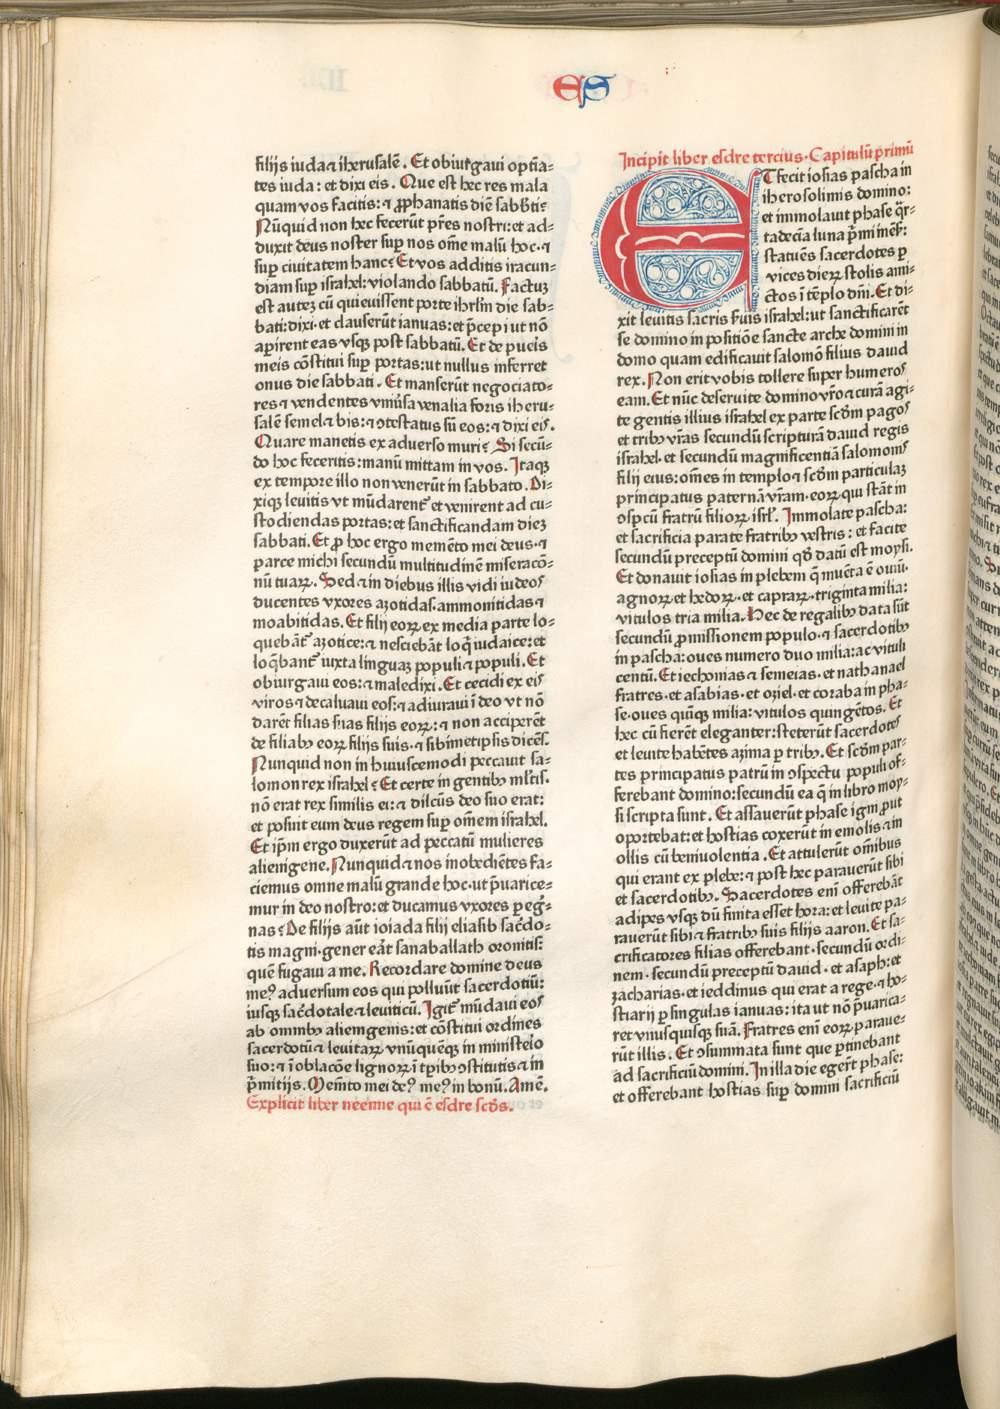 ES
filijs iuda ⁊ iherusalē. Et obiurgaui optīa⸗
tes iuda: et dixi eis. Que est hec res mala
quam vos facitis: ⁊ ꝓphanatis diē sabbti⸗
Nūquid non hec fecerūt pr̄es nostri: et ad⸗
duxit deus noster suꝑ nos om̄e malū hoc. ⁊
suꝑ ciuitatem hanc? Et vos additis iracun⸗
diam suꝑ israhel: violando sabbatū. Factuꝫ
est auteꝫ cū quieuissent porte ihrl̄m die sab⸗
bati: dixi. et clauserūt ianuas: et p̄cepi ut nō
aꝑirent eas vsqꝫ post sabbatū. Et de pueis
meis cōstitui suꝑ portas: ut nullus inferret
onus die sabbati. Et manserūt negociato⸗
res ⁊ vendentes vniu̇sa venalia foris iheru⸗
salē semel ⁊ bis: ⁊ ↄtestatus sū eos: ⁊ dixi eis.
Quare manetis ex aduerso muri? Si secū⸗
do hoc feceritis: manū mittam in vos. Itaqꝫ
ex tempore illo non venerūt in sabbato. Di⸗
xiqꝫ leuitis vt mūdarent᷑ et venirent ad cu⸗
stodiendas portas: et sanctificandam dieꝫ
sabbati. Et ꝓ hoc ergo memēto mei deus. ⁊
parce michi secundū multitudinē miseracō⸗
nū tuaꝝ. Sed ⁊ in diebus illis vidi iudeos
ducentes vxores aʒotidas. ammonitidas ⁊
moabitidas. Et filij eoꝝ ex media parte lo⸗
quebāt᷑ aʒotice: ⁊ nesciebāt loq̇ iudaice: et
loq̄bant᷑ iuxta linguaꝫ populi ⁊ populi. Et
obiurgaui eos: ⁊ maledixi. Et cecidi ex eis
viros ⁊ decaluaui eos: ⁊ adiuraui ī deo vt nō
darēt filias suas filijs eoꝝ: ⁊ non acciperēt
de filiabꝰ eoꝝ filijs suis. ⁊ sibimetipsis dicēs.
Nunquid non in huiuscemodi peccauit sa⸗
lomon rex israhel? Et certe in gentibꝰ ml̄tis.
nō erat rex similis ei: ⁊ dilcūs deo suo erat:
et posuit eum deus regem suꝑ om̄em israhel.
Et ip̄m ergo duxerūt ad peccatū mulieres
alienigene. Nunquid ⁊ nos inobediētes fa⸗
ciemus omne malū grande hoc. ut p̄uarice⸗
mur in deo nostro: et ducamus vxores ꝑegⁱ⸗
nas? De filijs aūt ioiada filij eliasib sac̄do⸗
tis magni. gener eāt sanaballath oronitis:
quē fugaui a me. Recordare domine deus
meꝰ aduersum eos qui polluūt sacerdotiū:
iusqꝫ sac̄dotale ⁊ leuiticū. Igit᷑ mūdaui eos
ab omnibꝰ alienigenis: et cōstitui ordines
sacerdotū ⁊ leuitaꝝ vnūquēqꝫ in ministeio
suo: ⁊ ī oblacōe lignoꝝ ī tꝑibꝰ ↄstitutis ⁊ in
p̄mitijs. Mem̄to mei deꝰ meꝰ in bonū. Amē.
Explicit liber neemie qui ē esdre scd̄s.
Incipit liber esdre tercius. Capitulū primū
ET fecit iosias pascha in
iherosolimis domino:
et immolauit phase q̄r⸗
tadecīa luna p̄mi mēs̄:
statuēs sacerdotes ꝑ
vices dieꝝ stolis ami⸗
ctos ī tēplo dn̄i. Et di⸗
xit leuitis sacris ẜuis israhel: ut sanctificarēt
se domino in positiōe sancte arche domini in
domo quam edificauit salomō filius dauid
rex. Non erit vobis tollere super humeros
eam. Et nūc deseruite domino vr̄o ⁊ curā agi⸗
te gentis illius israhel ex parte scd̄m pagos
et tribꝰ vr̄as secundū scripturā dauid regis
israhel. et secundū magnificentiā salomonis
filij eius: om̄es in templo ⁊ scd̄m particulaꝫ
principatus paternā vr̄am. eoꝝ qui stāt in
ↄspc̄ū fratrū filioꝝ isrl̄. Immolate pascha:
et sacrificia parate fratribꝰ vestris: et facite
secundū preceptū domini qd̄ datū est moysi.
Et donauit iosias in plebem q̄ inuēta ē ouiū.
agnoꝝ et hedoꝝ. et capraꝝ. triginta milia:
vitulos tria milia. Hec de regalibꝰ data sūt
secundū ꝓmissionem populo. ⁊ sacerdotibꝰ
in pascha: oues numero duo milia: ac vituli
centū. Et iechonias ⁊ semeias. et nathanael
fratres. et asabias. et oʒiel. et coraba in pha⸗
se. oues quīqꝫ milia: vitulos quingētos. Et
hec cū fierēt eleganter: steterūt sacerdotes
et leuite habētes aʒima ꝑ tribꝰ. Et scd̄m par⸗
tes principatus patrū in ↄspectu populi of⸗
ferebant domino: secundū ea q̄ in libro moy⸗
si scripta sunt. Et assauerūt phase igni ꝓut
oportebat: et hostias coxerūt in emolis ⁊ in
ollis cū beniuolentia. Et attulerūt om̄ibus
qui erant ex plebe: ⁊ post hec parauerūt sibi
et sacerdotibꝰ. Sacerdotes enī offerebāt
adipes vsqꝫ dū finita esset hora: et leuite pa⸗
rauerūt sibi ⁊ fratribꝰ suis filijs aaron. Et sa⸗
crificatores filias offerebant. secundū ordi⸗
nem. secundū preceptū dauid. et asaph: et
ʒacharias. et ieddinus qui erat a rege. ⁊ ho⸗
stiarij ꝑ singulas ianuas: ita ut nō p̄uarica⸗
ret vnusquisqꝫ suā. Fratres enī eoꝝ paraue⸗
rūt illis. Et ↄsummata sunt que ꝑtinebant
ad sacrificiū domini. In illa die egert̄ phase:
et offerebant hostias suꝑ domini sacrificiū